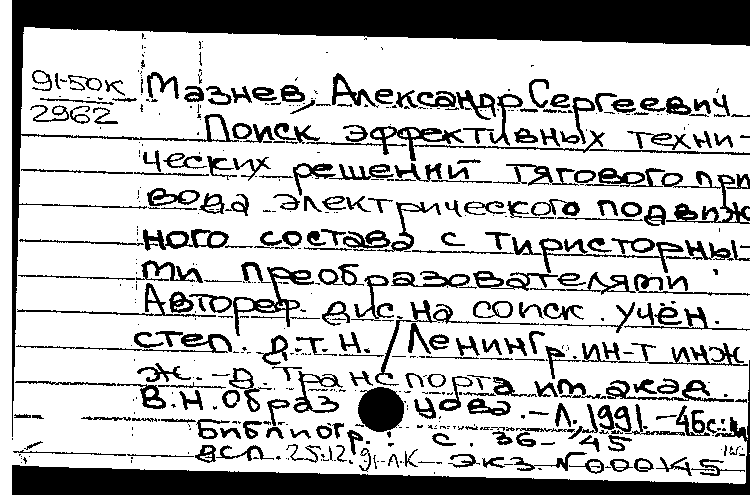 91-50к
2962
Мазнев, Александр Сергеевич
Поиск эффективных техни-
ческих решений тягового при
вода электрического подвиж
ного состава с тиристорны-
ми преобразователями
Автореф. дис. на соиск. учён.
степ. д.т.н. / Ленингр. ин-т инж
ж.-д. транспорта им. акад.
В.Н. Образцова. - Л., 1991. - 46с.: ил
Библиогр.: с. 36-45
дсп. 25.12.91-Л.К экз. №000145